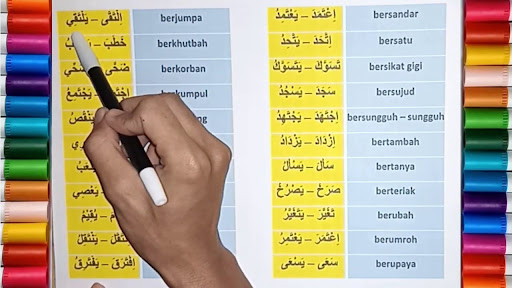 اِلْتَقَى – يَلْتَقِي berjumpa
خَطَبَ berkhutbah
ضَحَّى berkorban
berkumpul
يَعْصِي
يُقِيْمُ
يَنْتَقِلُ
اِفْتَرَقَ – يَفْتَرِقُ
اِعْتَمَدَ – يَعْتَمِدُ bersandar
اِتَّحَدَ – يَتَّحِدُ bersatu
تَسَوَّكَ – يَتَسَوَّكُ bersikat gigi
سَجَدَ – يَسْجُدُ bersujud
اِجْتَهَدَ – يَجْتَهِدُ bersungguh – sungguh
اِزْدَادَ – يَزْدَادُ bertambah
سَأَلَ – يَسْأَلُ bertanya
صَرَخَ – يَصْرُخُ berteriak
تَغَيَّرَ – يَتَغَيَّرُ berubah
اِعْتَمَرَ – يَعْتَمِرُ berumroh
سَعَى – يَسْعَى berupaya